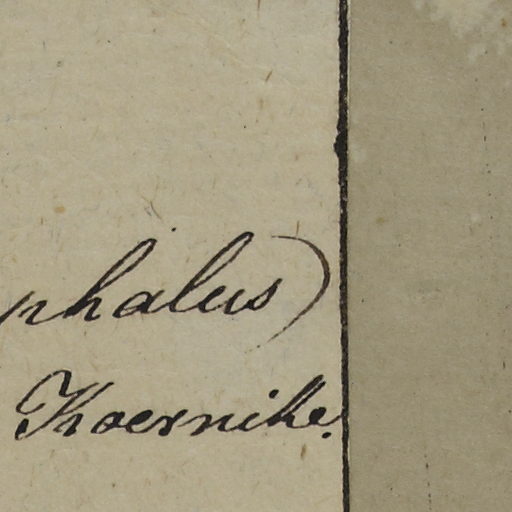 phalus)
Koernike.